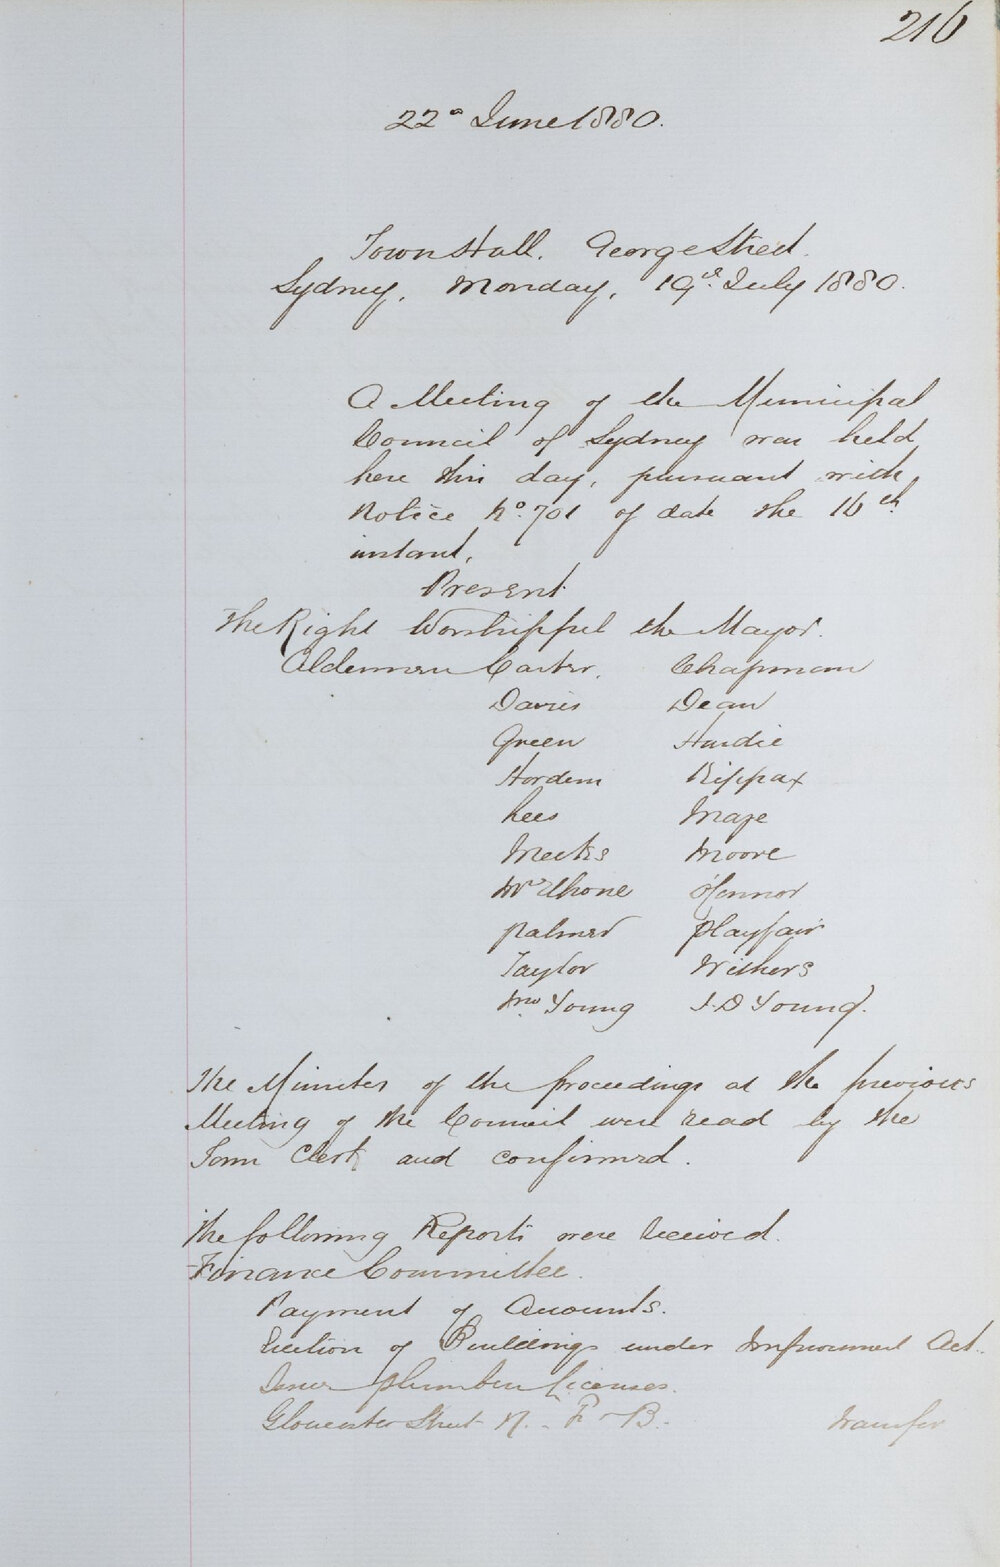 216
22d June 1880.
Town Hall. George Street.
Sydney, Monday, 19th July 1880.
A Meeting of the Municipal
Council of Sydney was held
here this day, pursuant with
Notice No. 701 of date the 16th
instant.
Present
The Right Worshipful the Mayor.
Aldermen Carter, Chapman
Davies Dean
Green Hardie
Hordern Kippax
Lees Maze
Meeks Moore
McElhone O'Connor
Palmer Playfair
Taylor Withers
Wm Young J. D Young.
The Minutes of the proceedings at the previous
Meeting of the Council were read by the
Town Clerk and confirmed.
The following Reports were received.
Finance Committee.
Payment of Accounts.
Erection of Buildings under Improvement Act.
Issue plumbers licenses.
Gloucester Street N. - F - B. transfer